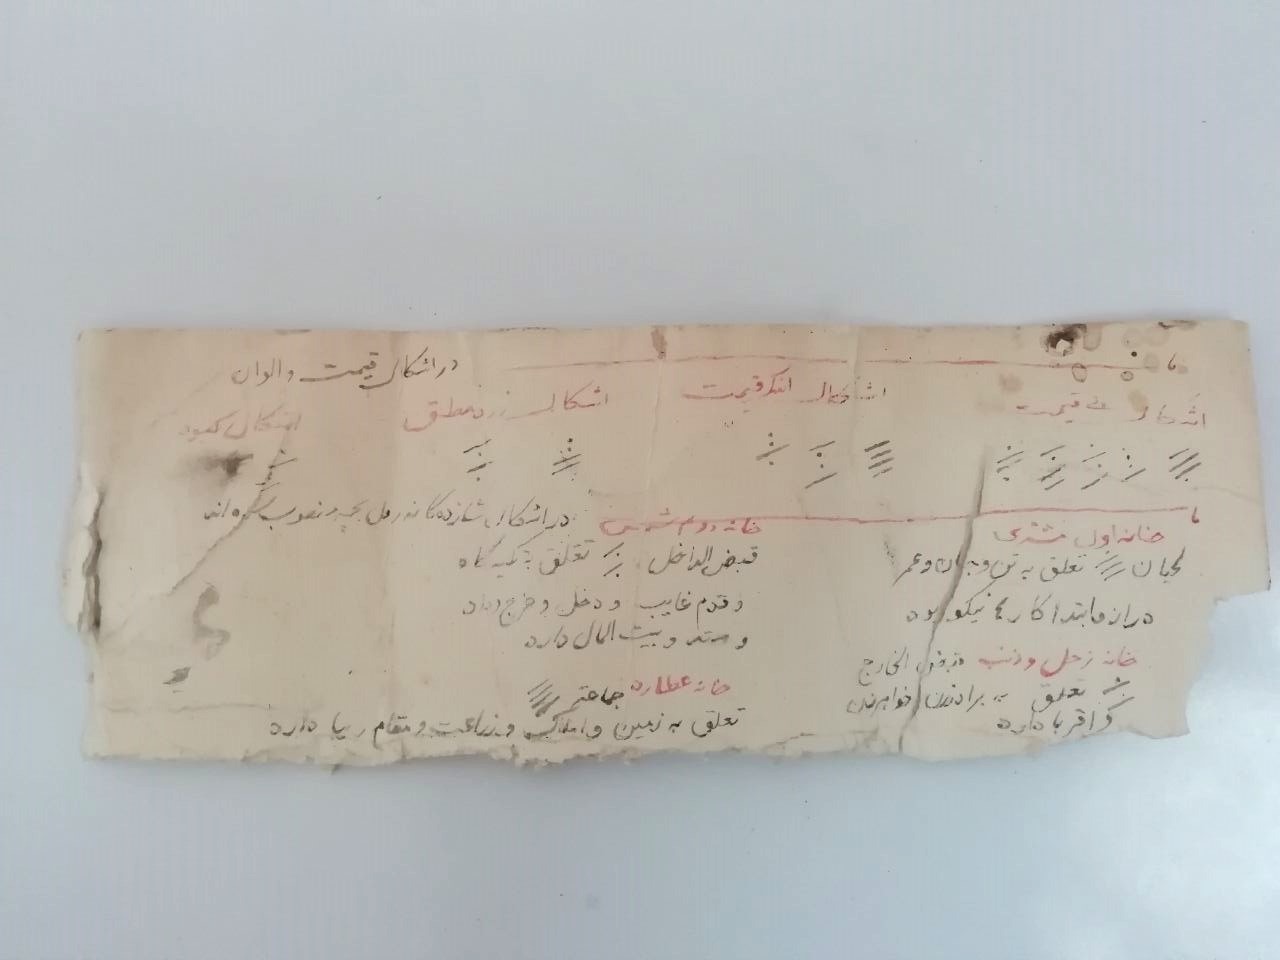 در اشکال قیمت و الوان
اشکال بی قیمت
اشکال اندک قیمت
اشکال زرد مطلق
اشکال کبود
در اشکال شانزده گانه رمل بچه منصوب
خانه اول مشتری
لحیان تعلق به تن و جان و عمر
دراز و ابتدا کارها نیکو بوده
خانه دوم شمس
قبض الداخل تعلق
و قدم غایب و دخل و خرج و داد
و ستد و بیت المال دارد
خانه زحل و ذنب قبض الخارج
تعلق به برادران خواهران
و اقربا دارد
خانه عطارد جماعتر
تعلق به زمین و املاک و زراعت و مقام دارد